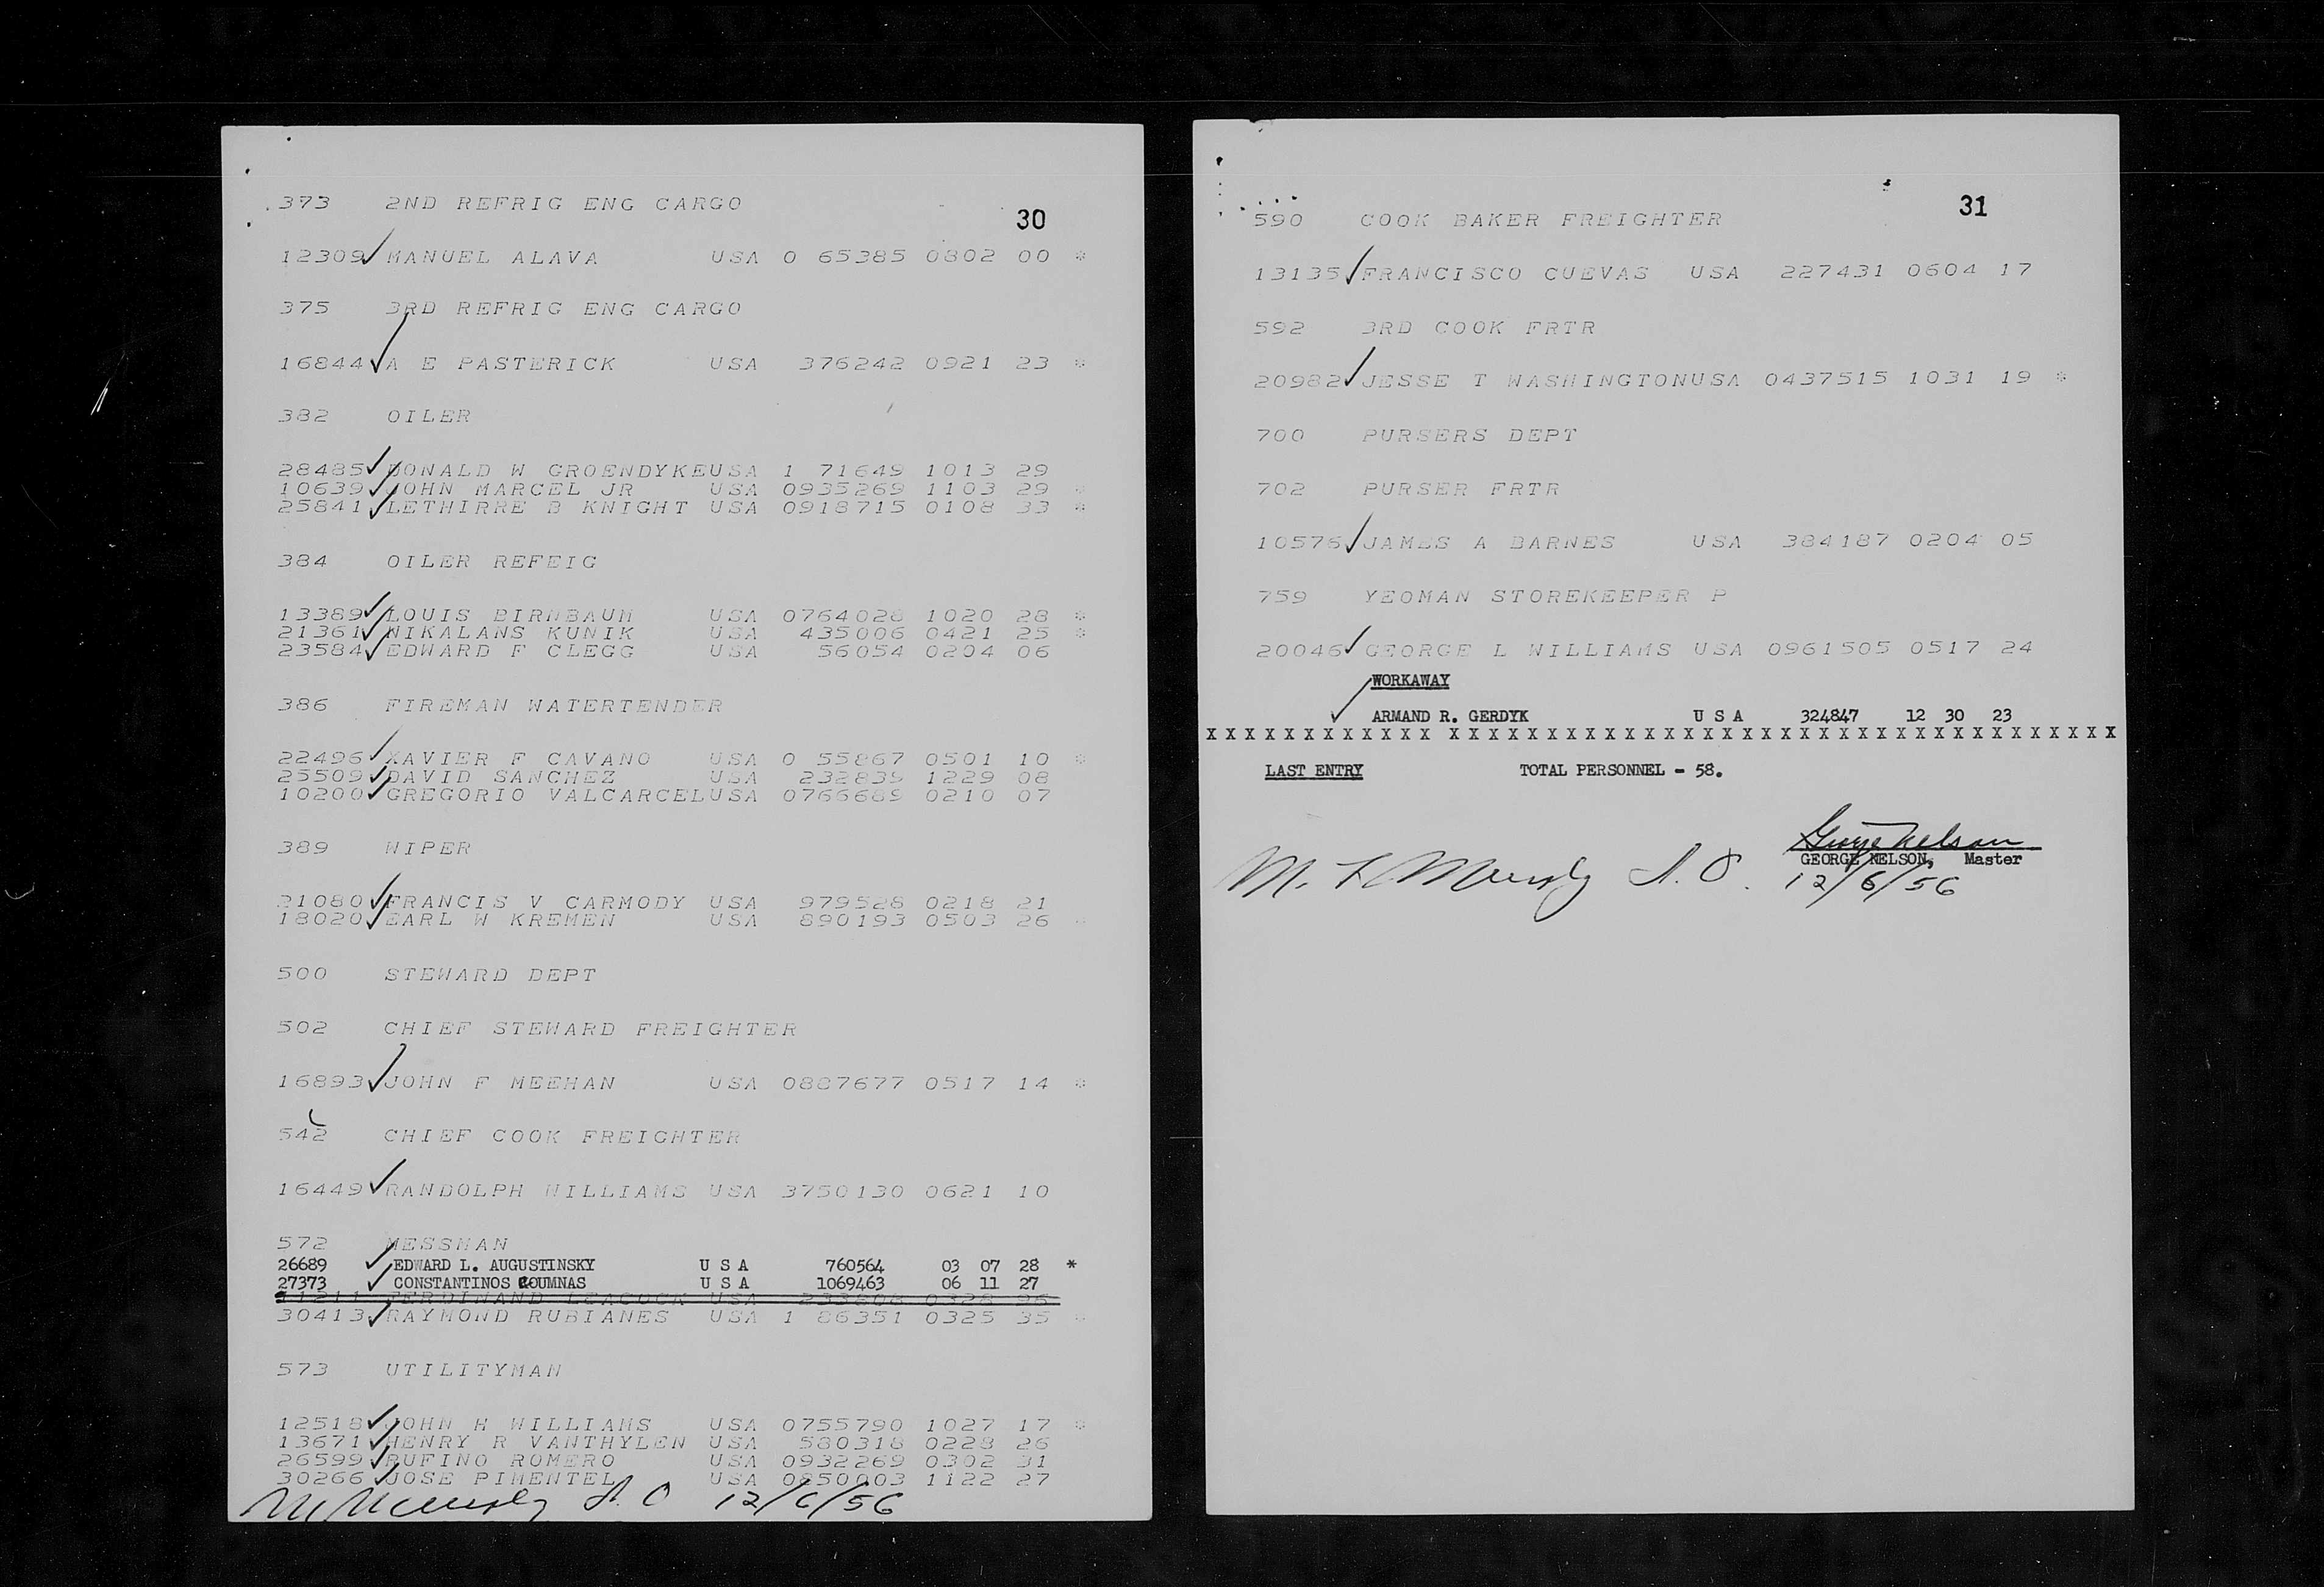 373 2ND REFRIG ENG CARGO
30
12309 MANUEL ALAVA USA 0 65385 0802 00 *
375 3RD REFRIG ENG CARGO
16844 A E PASTERICK USA 376242 0921 23 *
382 OILER
28485 DONALD W GROENDYKEUSA 1 71649 1013 29
10639 JOHN MARCEL JR USA 0935269 1103 29 *
25841 LETHIRRE B KNIGHT USA 0918715 0108 33 *
384 OILER REFEIG
13389 LOUIS BIRNBAUM USA 0764028 1020 28 *
21361 NIKALANS KUNIK USA 435006 0421 25 *
23584 EDWARD F CLEGG USA 56054 0204 06
386 FIREMAN WATERTENDER
22496 XAVIER F CAVANO USA 0 55867 0501 10 *
25509 DAVID SANCHEZ USA 232839 1229 08
10200 GREGORIO VALCARCELUSA 0766689 0210 07
389 WIPER
21080 FRANCIS V CARMODY USA 979528 0218 21
18020 EARL W KREMEN USA 890193 0503 26 *
500 STEWARD DEPT
502 CHIEF STEWARD FREIGHTER
16893 JOHN F MEEHAN USA 0887677 0517 14 *
542 CHIEF COOK FREIGHTER
16449 RANDOLPH WILLIAMS USA 3750130 0621 10
572 MESSMAN
26689 EDWARD L. AUGUSTINSKY U S A 760564 03 07 28 *
27373 CONSTANTINOS COUMNAS U S A 1069463 06 11 27
11211 FERDINAND LEACOCK USA 0328
30413 RAYMOND RUBIANES USA 1 86351 0325 35 *
573 UTILITYMAN
12518 JOHN H WILLIAMS USA 0755790 1027 17 *
13671 HENRY R VANTHYLEN USA 580318 0228 26
26599 RUFINO ROMERO USA 0932269 0302 31
30266 JOSE PIMENTEL USA 0850003 1122 27
12/6/56
31
590 COOK BAKER FREIGHTER
13135 FRANCISCO CUEVAS USA 227431 0604 17
592 3RD COOK FRTR
20982 JESSE T WASHINGTONUSA 0437515 1031 19 *
700 PURSERS DEPT
702 PURSER FRTR
10576 JAMES A BARNES USA 384187 0204 05
759 YEOMAN STOREKEEPER P
20046 GEORGE L WILLIAMS USA 0961505 0517 24
WORKAWAY
ARMAND R. GERDYK U S A 324847 12 30 23
X X X X X X X X X X X X X X X X X X X X X X X X X X X X X X X X X X X X X X X X X X X X X X X
LAST ENTRY TOTAL PERSONNEL - 58.
George Nelson
GEORGE NELSON, Master
12/6/56